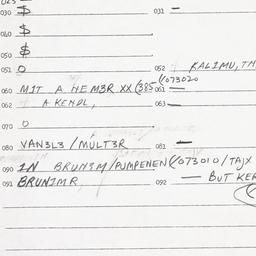 030 $ 031 —
040 $
050 $
051 0 052 KALIMU, TH
060 MIT A HEM3R XX (385 (/073020
061 —
062 A KENDL, 063 —
070 0
080 VAN3L3 / MULT3R 081 —
090 IN BRUN3M / PUMPENEN (/073010 / TAJX
091 BRUNIMR 092 — BUT KER